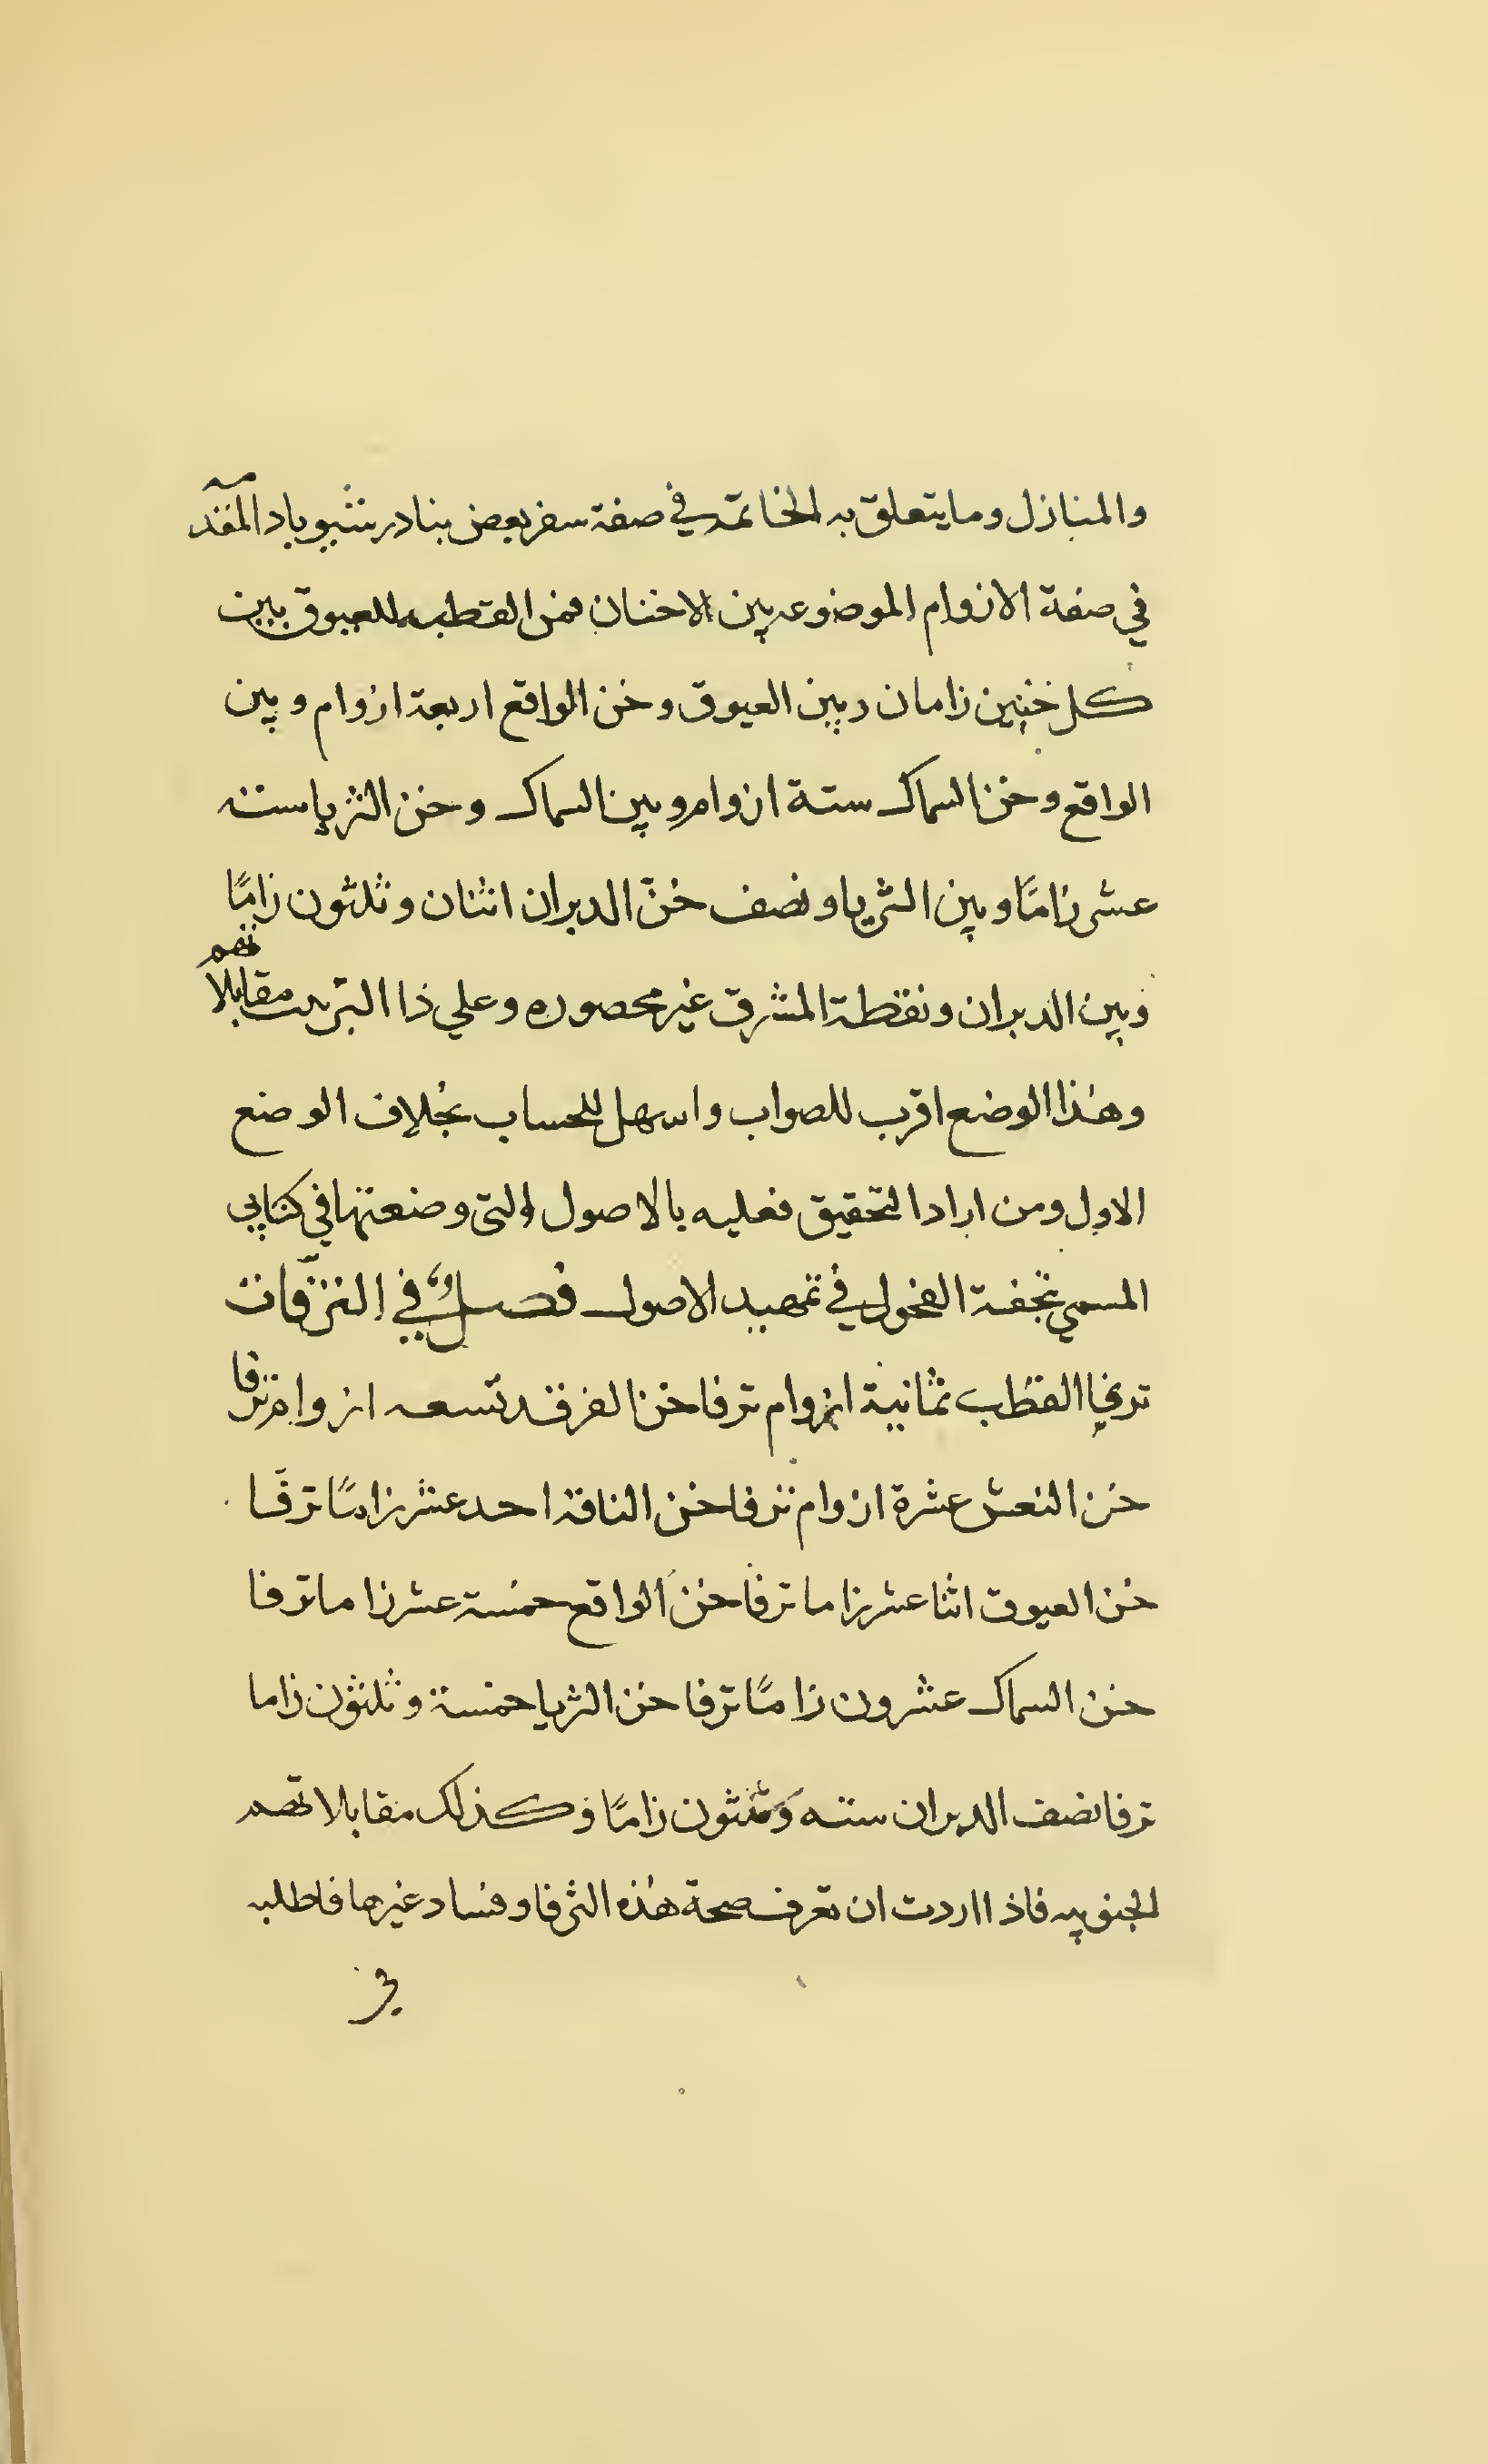 والمنازل وما يتعلق به الخاتمة في صفة سفر بعض بنادر ننثيبو باد المقدمه
في صفة الازوام الموضوعه بين الاخنان فمن القطب للعيوق بين
كل خنين زامان وبين العيوق وخن الواقع اربعة ازوام وبين
الواقع وخن السماك ستة ازوام وبين السماك وخن الثريا سته
عشر زامًا وبين الثريا ونصف خنّ الدبران اثنان وثلثون زامًا
وبين الدبران ونقطة المشرق غير محصوره وعلي ذا الترتيب مقابلاتهم
وهذا الوضع اقرب للصواب واسهل للحساب بخلاف الوضع
الاول ومن اراد التحقيق فعليه بالاصول التي وضعتها في كتابي
المسمي تحفة الفحول في تمهيد الاصول فصلٌ في الترفّات
ترفا القطب ثمانية ازوام ترفا خن الفرقد تسعه ازوام ترفا
خن النعش عشرة ازوام ترفا خن الناقة احد عشر زامًا ترفّا
خن العيوق اثنا عشر زاما ترفا خن الواقع خمسة عشر زاما ترفا
خن السماك عشرون زامًا ترفا خن الثريا خمسة وثلثون زاما
ترفا نصف الدبران سته وثلثون زامًا وكذلك مقابلاتهم
الجنوبيه فاذا اردت ان تعرف صحة هذه الترفا وفساد غيرها فاطلبه
في